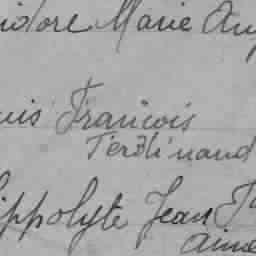 idore Marie Aug
uis François
Ferdinand
ippolyte Jean
Aimé